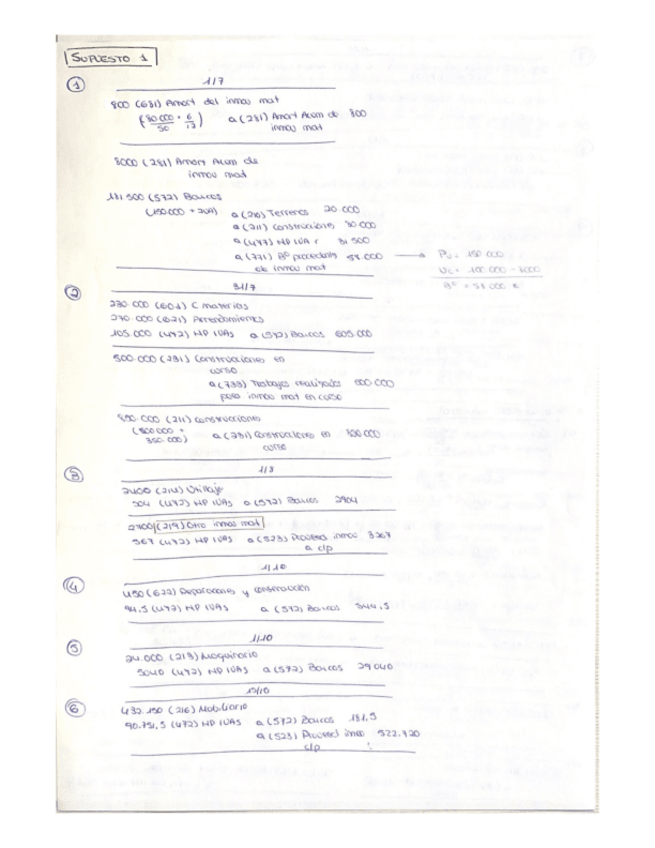 SUPUESTO 1
① 1/7
800 (681) Amort del inmov mat
(80.000/50 · 6/12) a (281) Amort Acum de 800
inmov mat
8000 (281) Amort Acum de
inmov mat
181.500 (572) Bancos
(150.000 + IVA) a (210) Terrenos 20.000
a (211) Construcciones
a (477) HP IVA r 31.500
a (771) Bº procedente 58.000 →
de inmov mat
Pv = 150.000
Bº = 58.000 €
② 31/7
230.000 (601) C materias
270.000 (621) Arrendamientos
105.000 (472) HP IVAs a (572) Bancos 605.000
500.000 (231) Construcciones en
curso
a (733) Trabajos realizados
para inmov mat en curso
(211) Construcciones
a (231) Construcciones en
curso
③ 1/8
2400 (214) Utillaje
504 (472) HP IVAs a (572) Bancos 2904
2700 (219) Otro inmov mat
567 (472) HP IVAs a (523) Proveed inmov 3267
a c/p
1/10
④ 450 (622) Reparaciones y conservación
94,5 (472) HP IVAs a (572) Bancos 544,5
1/10
⑤ 24.000 (213) Maquinaria
5040 (472) HP IVAs a (572) Bancos 29040
⑥ 432.150 (216) Mobiliario
90.751,5 (472) HP IVAs a (572) Bancos 181,5
a (523) Proveed inmov
c/p